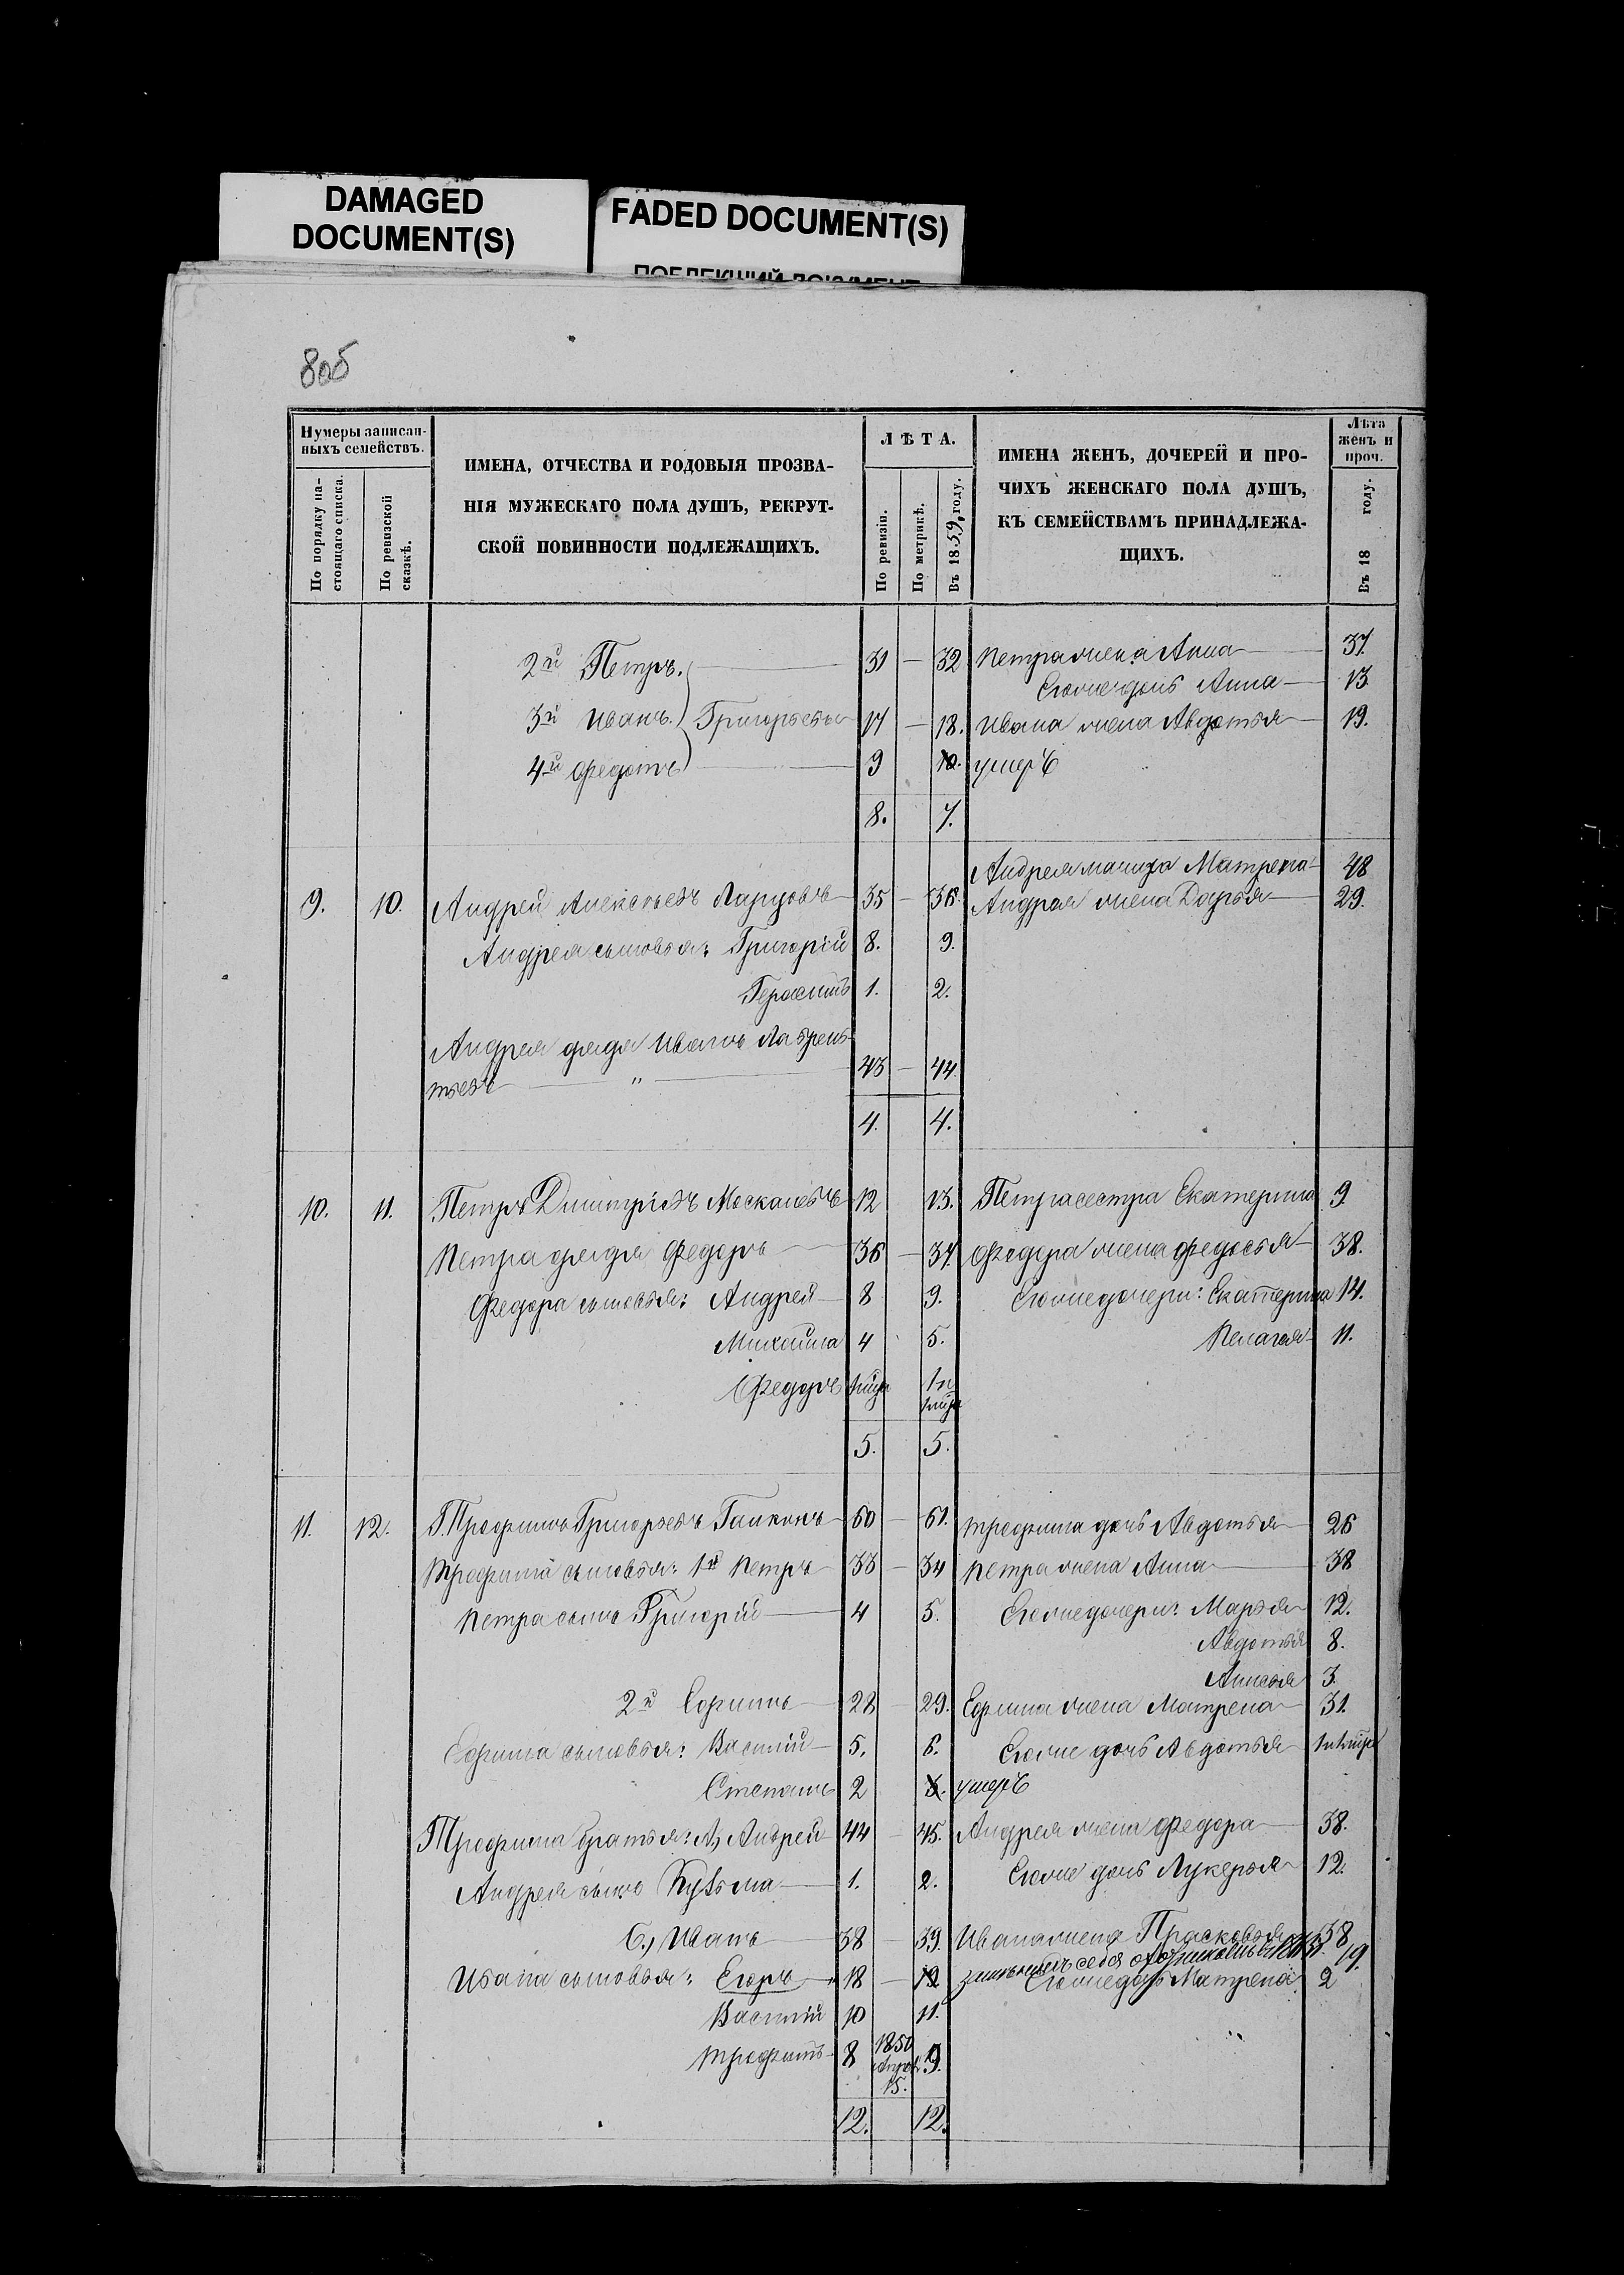 DAMAGED
DOCUMENT(S)
FADED DOCUMENT(S)
80б
Нумеры записан-
ныхъ семействъ.
По порядку на-
стоящаго списка.
По ревизской
сказкѣ.
ИМЕНА, ОТЧЕСТВА И РОДОВЫЯ ПРОЗВА-
НІЯ МУЖЕСКАГО ПОЛА ДУШЪ, РЕКРУТ-
СКОЙ ПОВИННОСТИ ПОДЛЕЖАЩИХЪ.
ЛѢТА.
По ревизіи.
По метрикѣ.
Въ 1859 году.
ИМЕНА ЖЕНЪ, ДОЧЕРЕЙ И ПРО-
ЧИХЪ ЖЕНСКАГО ПОЛА ДУШЪ,
КЪ СЕМЕЙСТВАМЪ ПРИНАДЛЕЖА-
ЩИХЪ.
Лѣта
женъ и
проч.
Въ 18 году.
2й Петръ. 31 — 32 Петра жена Анна 37.
Егоже дочь Анна 13.
3й Иванъ. Григорьевы 17 — 18. Ивана жена Авдотья 19.
4й Федотъ 9 10. умеръ
8. 7.
Андрея мачиха Матрена 48
9. 10. Андрей Алексѣевъ 35 — 36. Андрея жена Дарья 29.
Андрея сыновья: Григорій 8. 9.
Герасимъ 1. 2.
Андрея дядя Иванъ Лаврень-
тьевъ " 43 — 44.
4. 4.
10. 11. Петръ Димитріевъ Москалевъ 12 13. Петра сестра Екатерина 9
Петра дядя Федоръ 36 — 37. Федора жена Федосья 38.
Федора сыновья: Андрей 8 9. Егоже дочери: Екатерина 14.
Михайла 4 5. Пелагея 11.
Федоръ
5. 5.
11. 12. Трофимъ Григорьевъ 60 — 61. Трофима дочь Авдотья 26
Трофима сыновья: 1й Петръ 33 — 34 Петра жена Анна 38
Петра сынъ Григорій 4 5. Егоже дочери: Марья 12.
Авдотья 8.
Анисья 3.
2й Ефимъ 28 — 29. Ефима жена Матрена 31.
Ефима сыновья: Василій 5. 6. Егоже дочь Авдотья
Степанъ 2 3. умеръ
Трофима братья: А, Андрей 44 — 45. Андрея жена Федора 38.
Андрея сынъ Кузьма 1. 2. Егоже дочь Лукерья 12.
Б., Иванъ 38 — 39. Ивана жена Прасковья 38
Ивана сыновья: Егоръ 18 — 19. себя охотникомъ 19.
Егоже дочь Матрена 2
Василій 10 11.
Трофимъ 8 1850 9.
15.
12. 12.